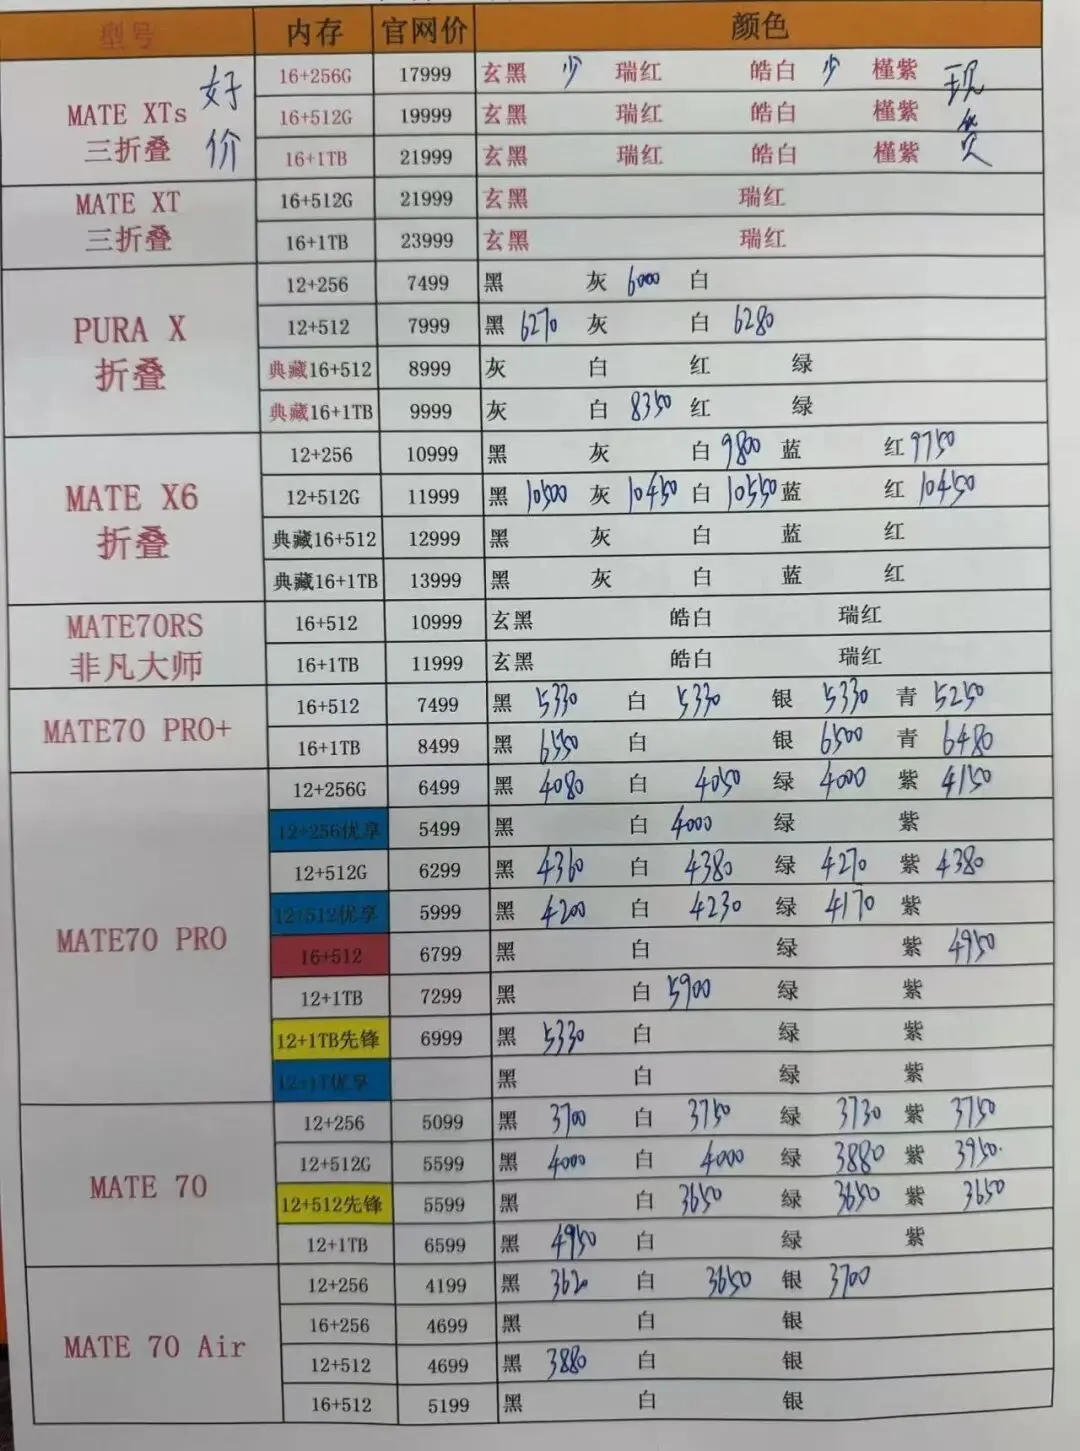 型号 内存 官网价 颜色
MATE XTs 三折叠 好价 现货
16+256G 17999 玄黑 少 瑞红 皓白 少 槿紫
16+512G 19999 玄黑 瑞红 皓白 槿紫
16+1TB 21999 玄黑 瑞红 皓白 槿紫
MATE XT 三折叠
16+512G 21999 玄黑 瑞红
16+1TB 23999 玄黑 瑞红
PURA X 折叠
12+256 7499 黑 灰 6000 白
12+512 7999 黑 6270 灰 白 6280
典藏16+512 8999 灰 白 红 绿
典藏16+1TB 9999 灰 白 8350 红 绿
MATE X6 折叠
12+256 10999 黑 灰 白 9800 蓝 红 9750
12+512G 11999 黑 10500 灰 10450 白 10550 蓝 红 10450
典藏16+512 12999 黑 灰 白 蓝 红
典藏16+1TB 13999 黑 灰 白 蓝 红
MATE70RS 非凡大师
16+512 10999 玄黑 皓白 瑞红
16+1TB 11999 玄黑 皓白 瑞红
MATE70 PRO+
16+512 7499 黑 5330 白 5330 银 5330 青 5250
16+1TB 8499 黑 6550 白 银 6500 青 6480
MATE70 PRO
12+256G 6499 黑 4080 白 4050 绿 4000 紫 4150
12+256优享 5499 黑 白 4000 绿 紫
12+512G 6299 黑 4360 白 4380 绿 4270 紫 4380
12+512优享 5999 黑 4200 白 4230 绿 4170 紫
16+512 6799 黑 白 绿 紫 4950
12+1TB 7299 黑 白 5900 绿 紫
12+1TB先锋 6999 黑 5330 白 绿 紫
12+1T优享 黑 白 绿 紫
MATE 70
12+256 5099 黑 3700 白 3750 绿 3730 紫 3750
12+512G 5599 黑 4000 白 4000 绿 3880 紫 3950.
12+512先锋 5599 黑 白 3650 绿 3650 紫 3650
12+1TB 6599 黑 4950 白 绿 紫
MATE 70 Air
12+256 4199 黑 3620 白 3650 银 3700
16+256 4699 黑 白 银
12+512 4699 黑 3880 白 银
16+512 5199 黑 白 银